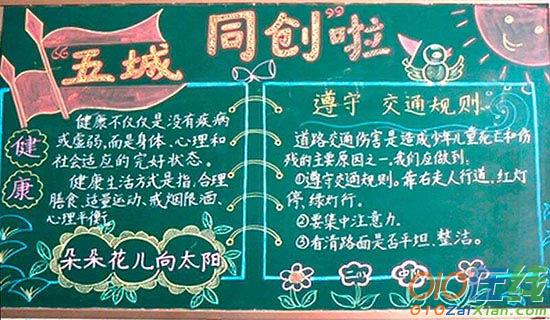 “五城同创”啦
健康
健康不仅仅是没有疾病
或虚弱,而是身体、心理和
社会适应的完好状态。
健康生活方式是指,合理
膳食、适量运动、戒烟限酒、
心理平衡。
朵朵花儿向太阳
遵守 交通规则。
道路交通伤害是造成少年儿童死亡和伤
残的主要原因之一。我们应做到:
①遵守交通规则。靠右走人行道,红灯
停,绿灯行。
②要集中注意力。
③看清路面是否平坦、整洁。
二小
010在线
010zaixian.com